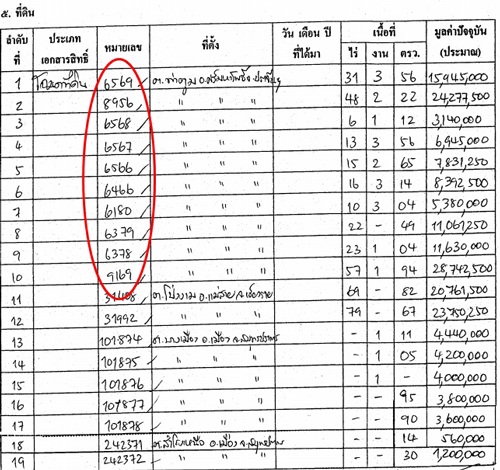 ๕. ที่ดิน
ลำดับที่ ประเภทเอกสารสิทธิ์ หมายเลข ที่ตั้ง วัน เดือน ปี ที่ได้มา เนื้อที่ ไร่ งาน ตรว. มูลค่าปัจจุบัน (ประมาณ)
1 โฉนดที่ดิน 6569 31 3 56 15,945,000
2 8956 " " " 48 2 22 24,277,500
3 6568 " " " 6 1 12 3,140,000
4 6567 " " " 13 3 56 6,945,000
5 6566 " " " 15 2 65 7,831,250
6 6466 " " " 16 3 14 8,392,500
7 6180 " " " 10 3 04 5,380,000
8 6379 " " " 22 - 49 11,061,250
9 6378 " " " 23 1 04 11,630,000
10 9169 " " " 57 1 94 28,742,500
11 ต.โป่งงาม อ.แม่สาย จ.เชียงราย 69 - 82 20,761,500
12 31992 " " " 79 - 67 23,750,250
13 101874 ต.บางเมือง อ.เมือง จ.สมุทรปราการ - 1 11 4,440,000
14 101875 " " " - 1 05 4,200,000
15 101876 " " " - 1 - 4,000,000
16 101877 " " " - - 95 3,800,000
17 101878 " " " - - 90 3,600,000
18 242371 ต.สำโรงเหนือ อ.เมือง จ.สมุทรปราการ - - 14 560,000
19 242372 " " " - - 30 1,200,000